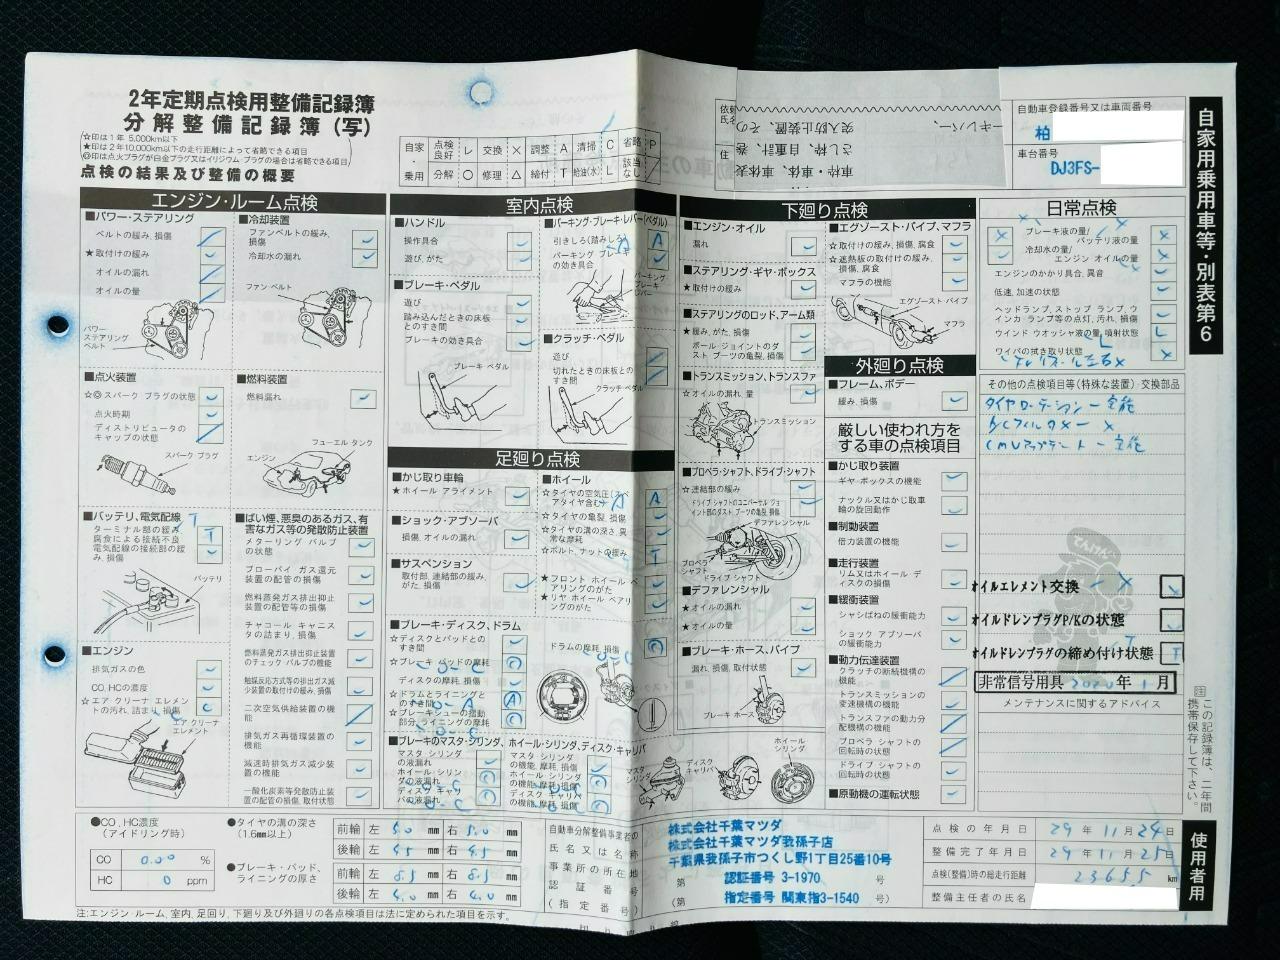 2年定期点検用整備記録簿
分解整備記録簿(写)
☆印は1年 5,000km以下
★印は2年10,000km以下の走行距離によって省略できる項目
◎印は点火プラグが白金プラグ又はイリジウム・プラグの場合は省略できる項目
点検の結果及び整備の概要
自家・乗用
点検良好 レ 交換 × 調整 A 清掃 C 省略 P
分解 ○ 修理 △ 締付 T 給油(水) L 該当なし
自動車登録番号又は車両番号
柏
車台番号
DJ3FS-
自家用乗用車等・別表第6
エンジン・ルーム点検
■パワー・ステアリング
ベルトの緩み、損傷
★取付けの緩み
オイルの漏れ
オイルの量
パワーステアリングベルト
■冷却装置
ファンベルトの緩み、損傷
冷却水の漏れ
ファン・ベルト
■点火装置
☆◎スパーク プラグの状態
点火時期
ディストリビュータのキャップの状態
スパーク プラグ
■燃料装置
燃料漏れ
フューエル タンク
エンジン
■バッテリ、電気配線
ターミナル部の緩み、腐食による接続不良
電気配線の接続部の緩み、損傷
バッテリ
■ばい煙、悪臭のあるガス、有害なガス等の発散防止装置
メターリング バルブの状態
ブローバイ ガス還元装置の配管の損傷
燃料蒸発ガス排出抑止装置の配管等の損傷
チャコール キャニスタの詰まり、損傷
燃料蒸発ガス排出抑止装置のチェック バルブの機能
触媒反応方式等の排出ガス減少装置の取付けの緩み、損傷
二次空気供給装置の機能
排気ガス再循環装置の機能
減速時排気ガス減少装置の機能
一酸化炭素等発散防止装置の配管の損傷、取付状態
■エンジン
排気ガスの色
CO、HCの濃度
☆エア クリーナ エレメントの汚れ、詰まり、損傷
エア クリーナ エレメント
室内点検
■ハンドル
操作具合
遊び、がた
■ブレーキ・ペダル
遊び
踏み込んだときの床板とのすき間
ブレーキの効き具合
ブレーキ ペダル
■パーキング・ブレーキ・レバー(ペダル)
引きしろ(踏みしろ)
パーキング ブレーキの効き具合
パーキング ブレーキ レバー
■クラッチ・ペダル
遊び
切れたときの床板とのすき間
クラッチ・ペダル
足廻り点検
■かじ取り車輪
★ホイール アライメント
■ショック・アブソーバ
損傷、オイルの漏れ
■サスペンション
取付部、連結部の緩み、がた、損傷
■ホイール
☆タイヤの亀裂、損傷
☆タイヤの溝の深さ、異常な摩耗
☆ボルト、ナットの緩み
★フロント ホイール ベアリングのがた
★リヤ ホイール ベアリングのがた
■ブレーキ・ディスク、ドラム
☆ディスクとパッドとのすき間
☆ブレーキ パッドの摩耗
ディスクの摩耗、損傷
☆ドラムとライニングとのすき間
☆ブレーキシューの摺動部分、ライニングの摩耗
ドラムの摩耗、損傷
■ブレーキのマスタ・シリンダ、ホイール・シリンダ、ディスク・キャリパ
マスタ シリンダの液漏れ
ホイール シリンダの液漏れ
ディスク キャリパの液漏れ
マスタ シリンダの機能、摩耗、損傷
ホイール シリンダの機能、摩耗、損傷
ディスク キャリパの機能、摩耗、損傷
マスタ シリンダ
ディスク キャリパ
ホイール シリンダ
下廻り点検
■エンジン・オイル
漏れ
■ステアリング・ギヤ・ボックス
★取付けの緩み
■ステアリングのロッド、アーム類
★緩み、がた、損傷
ボール・ジョイントのダスト ブーツの亀裂、損傷
■トランスミッション、トランスファ
☆オイルの漏れ、量
トランスミッション
■プロペラ・シャフト、ドライブ・シャフト
☆連結部の緩み
ドライブ シャフトのユニバーサル ジョイント部のダスト ブーツの亀裂、損傷
デファレンシャル
プロペラ シャフト
ドライブ シャフト
■デファレンシャル
★オイルの漏れ
★オイルの量
■ブレーキ・ホース、パイプ
漏れ、損傷、取付状態
ブレーキ ホース
■エグゾースト・パイプ、マフラ
☆取付けの緩み、損傷、腐食
☆遮熱板の取付けの緩み、損傷、腐食
マフラの機能
エグゾースト パイプ
マフラ
外廻り点検
■フレーム、ボデー
緩み、損傷
厳しい使われ方をする車の点検項目
■かじ取り装置
ギヤ・ボックスの機能
ナックル又はかじ取車輪の旋回動作
■制動装置
倍力装置の機能
■走行装置
リム又はホイール ディスクの損傷
■緩衝装置
シャシばねの緩衝能力
ショック アブソーバの緩衝能力
■動力伝達装置
クラッチの断続機構の機能
トランスミッションの変速機構の機能
トランスファの動力分配機構の機能
プロペラ シャフトの回転時の状態
ドライブ シャフトの回転時の状態
■原動機の運転状態
日常点検
ブレーキ液の量
バッテリ液の量
冷却水の量
エンジン オイルの量
エンジンのかかり具合、異音
低速、加速の状態
ヘッドランプ、ストップ ランプ、ウインカ ランプ等の点灯、汚れ、損傷
ウインド ウオッシャ液の量、噴射状態
ワイパの拭き取り状態
その他の点検項目等(特殊な装置)・交換部品
タイヤローテーション－実施
オイルエレメント交換
オイルドレンプラグP/Kの状態
オイルドレンプラグの締め付け状態
非常信号用具 2020年1月
メンテナンスに関するアドバイス
注 この記録簿は、二年間携帯保存して下さい。
●CO、HC濃度
(アイドリング時)
CO 0.00 %
HC 0 ppm
●タイヤの溝の深さ
(1.6mm以上)
前輪 左 5.0 mm 右 5.0 mm
後輪 左 4.5 mm 右 4.5 mm
●ブレーキ・パッド、ライニングの厚さ
前輪 左 8.5 mm 右 8.5 mm
後輪 左 4.0 mm 右 4.0 mm
自動車分解整備事業者の
氏名又は名称
事業所の所在地
認証番号
(指定番号)
株式会社千葉マツダ
株式会社千葉マツダ我孫子店
千葉県我孫子市つくし野1丁目25番10号
第 認証番号 3-1970 号
(第 指定番号 関東指3-1540 号)
点検の年月日 29年11月24日
整備完了年月日 29年11月25日
点検(整備)時の総走行距離 23655 km
整備主任者の氏名
使用者用
注:エンジン ルーム、室内、足廻り、下廻り及び外廻りの各点検項目は法に定められた項目を示す。